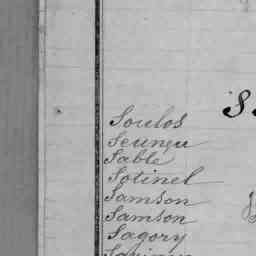 S
Soulos
Seungu
Sable
Sotinel
Samson
Samson
Sagory